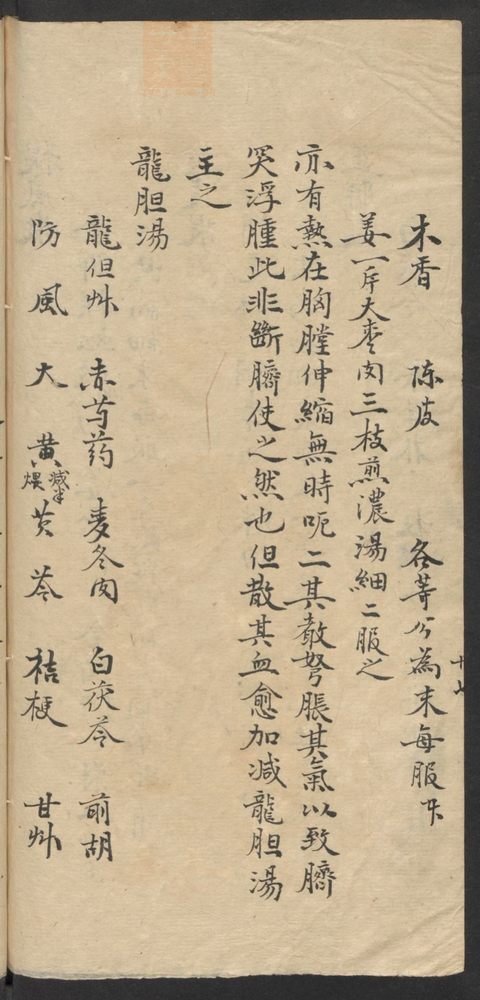 木香　陳皮　各等分為末每服半
姜一斤大枣肉三枝煎濃湯細二服之
亦有熱在胸膛伸縮無時呃二其教努脹其氣以致臍
突浮腫此非斷臍使之然也但散其血愈加減龍胆湯
主之
龍胆湯
龍但艸　赤芍药　麦冬肉　白茯苓　前胡
防風　大黃煨減半　芡苓　桔梗　甘艸
十七